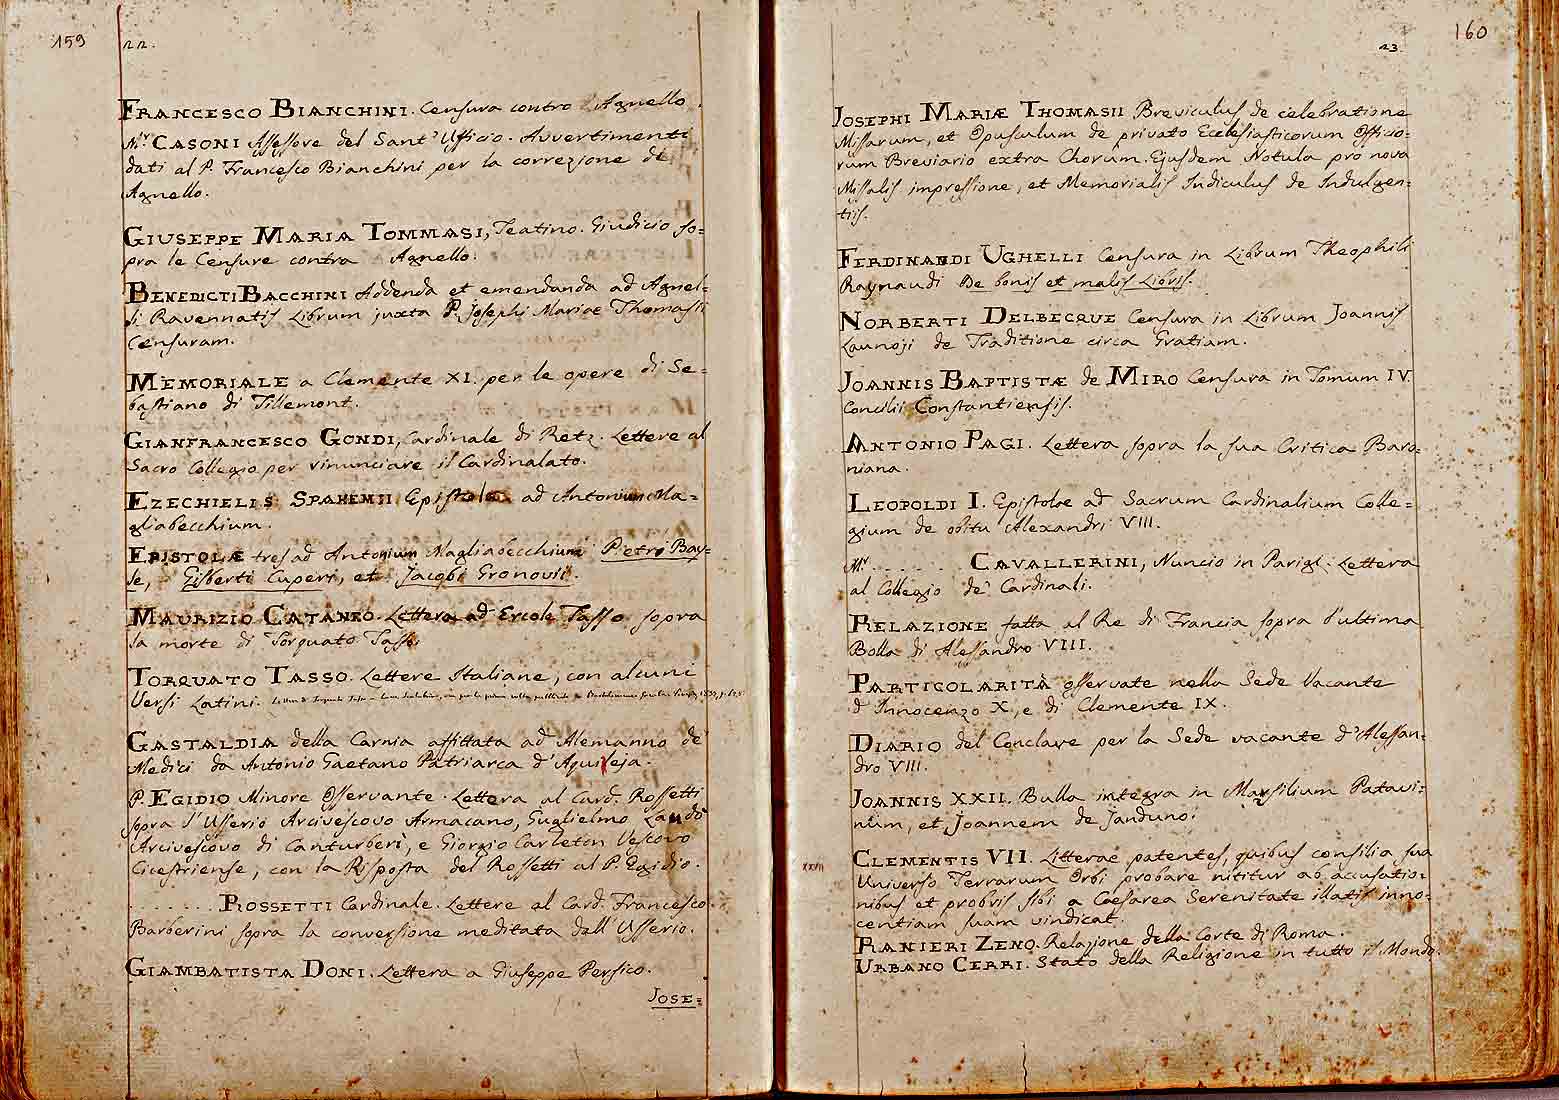 159
22.
FRANCESCO BIANCHINI. Censura contro l'Agnello.
Mr. CASONI Assessore del Sant' Ufficio. Avvertimenti
dati al P. Francesco Bianchini per la correzione di
Agnello.
GIUSEPPE MARIA TOMMASI, Teatino. Giudicio so=
pra le Censure contra Agnello.
BENEDICTI BACCHINI Addenda et emendanda ad Agnel=
li Ravennatis Librum juxta P. Josephi Mariae Thomasii
Censuram.
MEMORIALE a Clemente XI. per le opere di Se=
bastiano di Tillemont.
GIANFRANCESCO GONDI, Cardinale di Retz. Lettere al
Sacro Collegio per rinunciare il Cardinalato.
EZECHIELIS SPAHEMII Epistola ad Antonium Ma=
gliabecchium.
EPISTOLÆ tres ad Antonium Magliabecchium Pietri Bay=
le, Gisberti Cuperi, et Jacobi Gronovii.
MAURIZIO CATANEO. Lettera ad Ercole Tasso sopra
la morte di Torquato Tasso.
TORQUATO TASSO. Lettere Italiane, con alcuni
Versi Latini.
GASTALDIA della Carnia affittata ad Alemanno de'
Medici da Antonio Gaetano Patriarca d'Aquileja.
P. EGIDIO Minore Osservante. Lettera al Card. Rossetti
sopra l'Usserio Arcivescovo Armacano, Guglielmo Laudo
Arcivescovo di Canturberì, e Giorgio Carleton Vescovo
Cicestriense, con la Risposta del Rossetti al P. Egidio.
....... ROSSETTI Cardinale. Lettere al Card. Francesco
Barberini sopra la conversione meditata dall'Usserio.
GIAMBATISTA DONI. Lettera a Giuseppe Persico.
JOSE=
160
23.
JOSEPHI MARIÆ THOMASII Breviculus de celebratione
Missarum, et Opusculum de privato Ecclesiasticorum Officio=
rum Breviario extra Chorum. Ejusdem Notula pro nova
Missalis impressione, et Memorialis Indiculus de Indulgen=
tiis.
FERDINANDI UGHELLI Censura in Librum Theophili
Raynaudi De bonis et malis Libris.
NORBERTI DELBECQUE Censura in Librum Joannis
Launoji de Traditione circa Gratiam.
JOANNIS BAPTISTÆ de MIRO Censura in Tomum IV.
Concilii Constantiensis.
ANTONIO PAGI. Lettera sopra la sua Critica Baro=
niana.
LEOPOLDI I. Epistolae ad Sacrum Cardinalium Colle=
gium de obitu Alexandri VIII.
Mr. ...... CAVALLERINI, Nuncio in Parigi: Lettera
al Collegio de' Cardinali.
RELAZIONE fatta al Re di Francia sopra l'ultima
Bolla di Alessandro VIII.
PARTICOLARITÀ osservate nella Sede Vacante
d'Innocenzo X, e di Clemente IX.
DIARIO del Conclave per la Sede vacante d'Alessan=
dro VIII.
JOANNIS XXII. Bulla integra in Marsilium Patavi=
num, et Joannem de Janduno.
XXVII
CLEMENTIS VII. Litterae patentes, quibus consilia sua
Universo Terrarum Orbi probare nititur ab accusatio=
nibus et probris sibi a Caesarea Serenitate illatis inno=
centiam suam vindicat.
RANIERI ZENO. Relazione della Corte di Roma.
URBANO CERRI. Stato della Religione in tutto il Mondo.